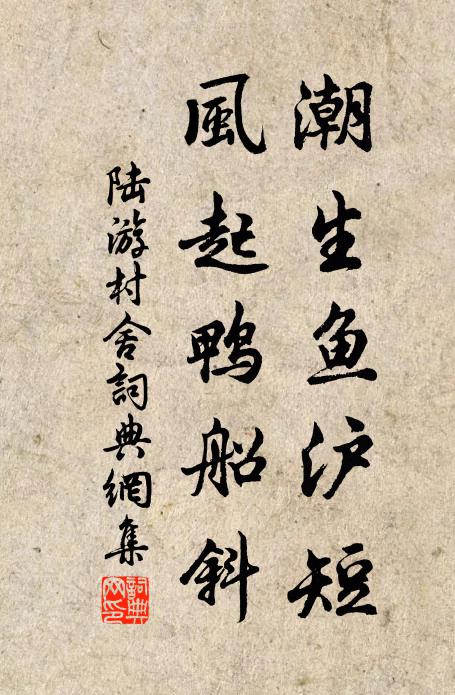 潮生鱼沪短
風起鴨船斜
陆游村舍詞典網集
詞典網印